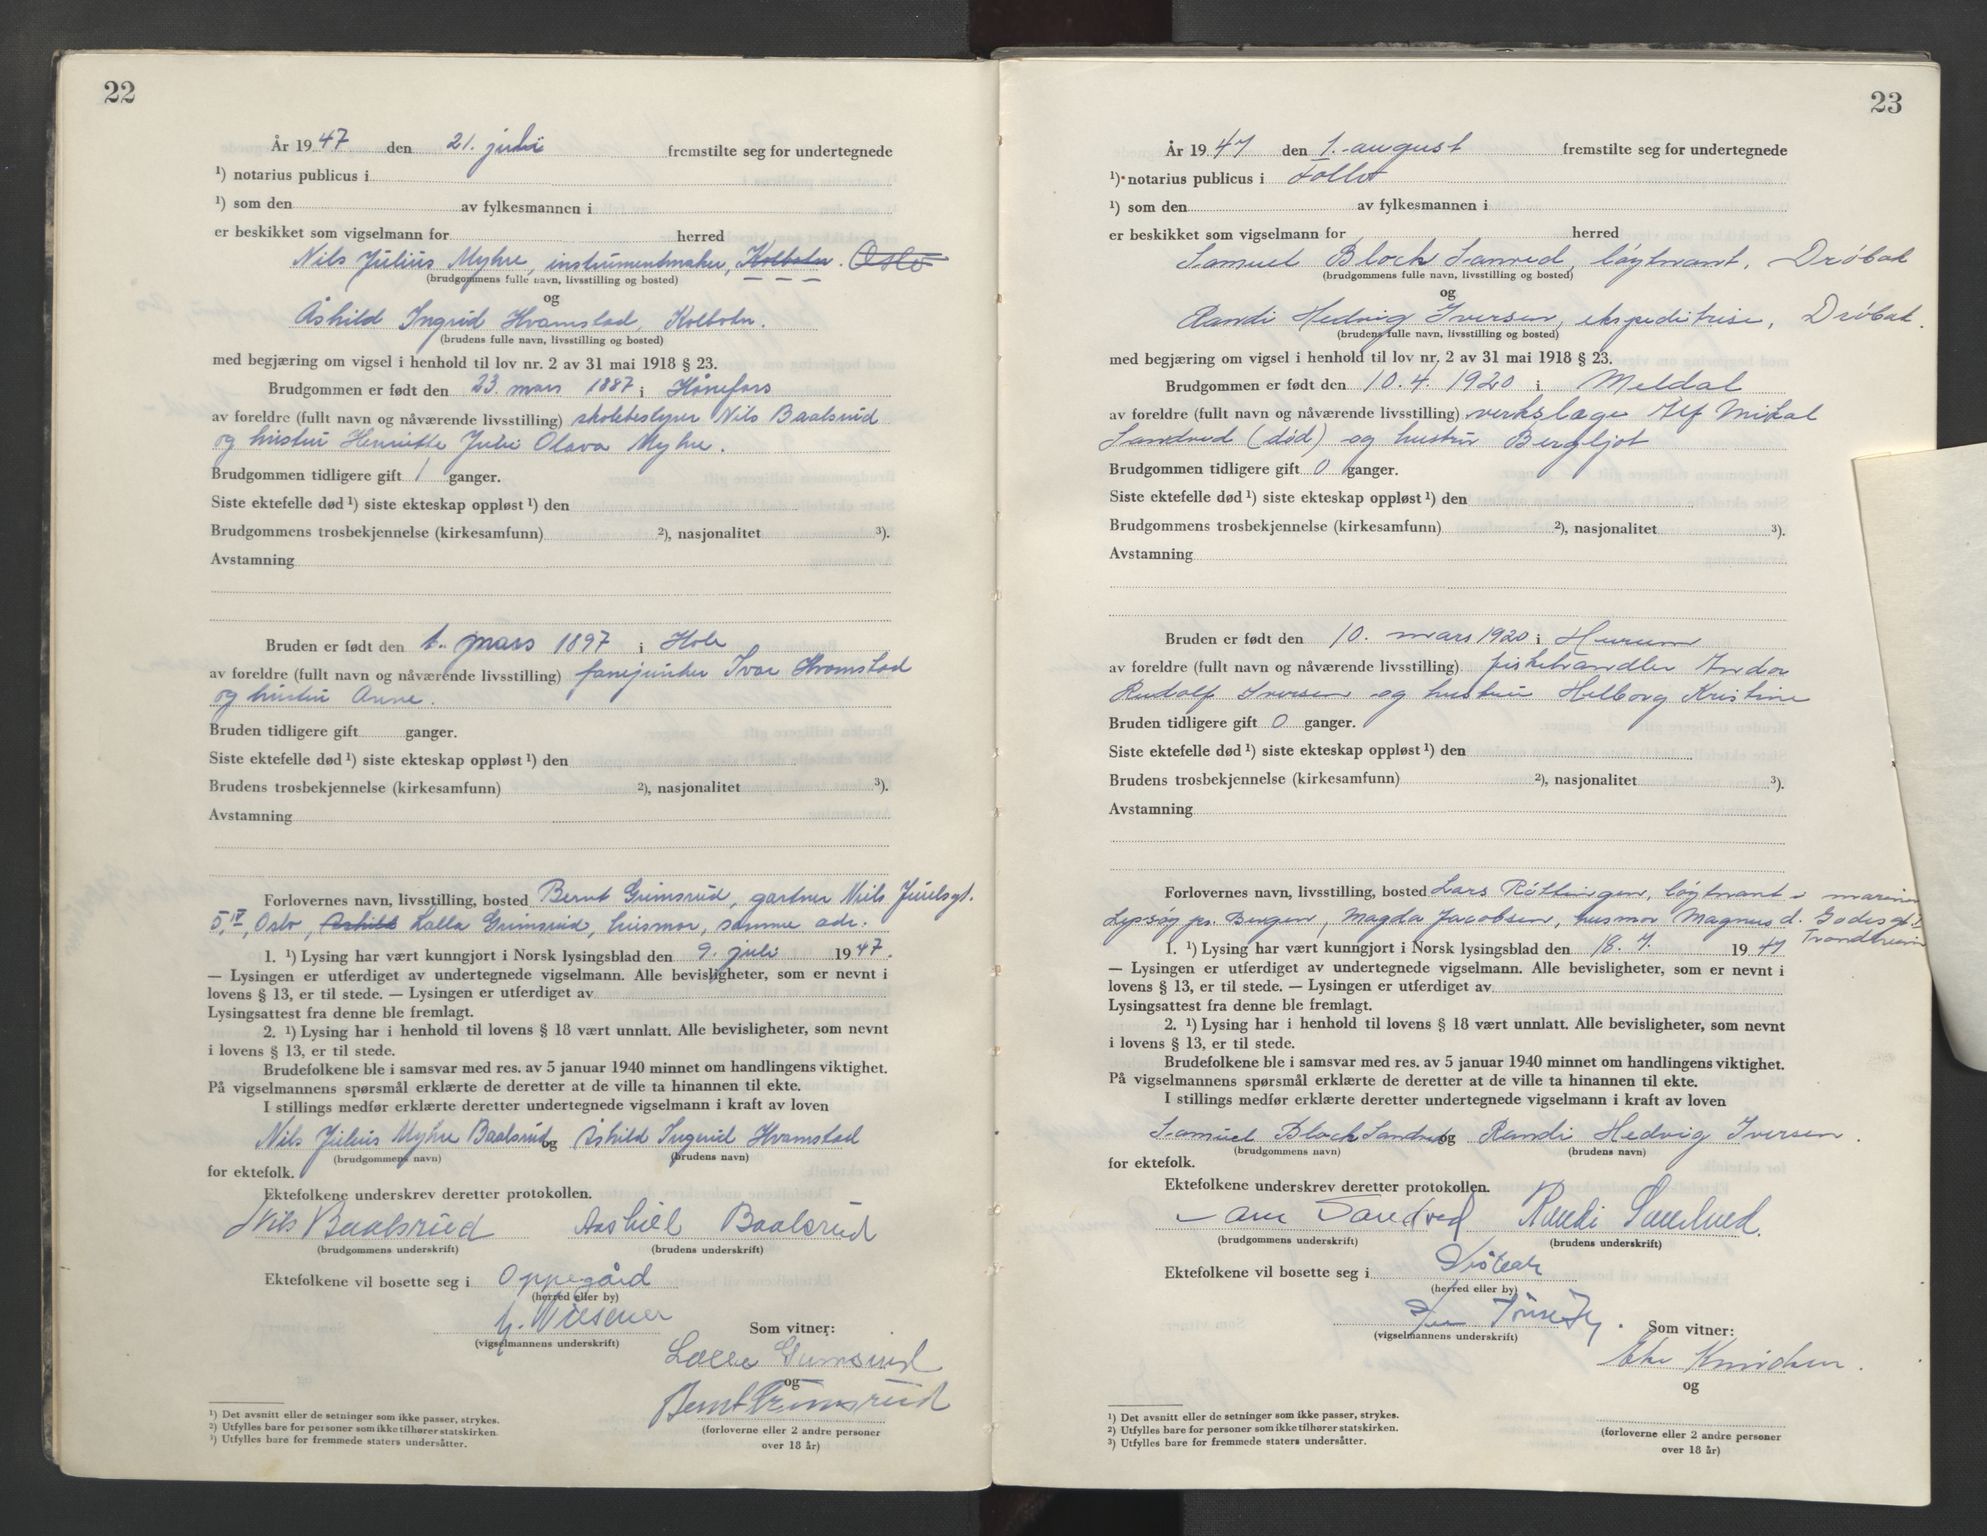 22
År 1947 den 21. juli fremstilte seg for undertegnede
¹) notarius publicus i
¹) som den av fylkesmannen i
er beskikket som vigselmann for herred
Nils Julius Myhre, instrumentmaker, Kolbotn. Oslo
(brudgommens fulle navn, livsstilling og bosted)
og
Åshild Ingrid Hvamstad, Kolbotn.
(brudens fulle navn, livsstilling og bosted)
med begjæring om vigsel i henhold til lov nr. 2 av 31 mai 1918 § 23.
Brudgommen er født den 23. mars 1887 i Hønefoss
av foreldre (fullt navn og nåværende livsstilling) skolebestyrer Nils Baalsrud
og hustru Henriette Julie Olava Myhre.
Brudgommen tidligere gift 1 ganger.
Siste ektefelle død ¹) siste ekteskap oppløst ¹) den
Brudgommens trosbekjennelse (kirkesamfunn) ²), nasjonalitet ³).
Avstamning
Bruden er født den 1. mars 1897 i Hole
av foreldre (fullt navn og nåværende livsstilling) fanejunker Ivar Hvamstad
og hustru Anne.
Bruden tidligere gift ganger.
Siste ektefelle død ¹) siste ekteskap oppløst ¹) den
Brudens trosbekjennelse (kirkesamfunn) ²), nasjonalitet ³).
Avstamning
Forlovernes navn, livsstilling, bosted Bernt Grimsrud, gartner Niels Juelsgt.
5, IV, Oslo, Åshild Lalla Grimsrud, husmor, samme adr.
1. ¹) Lysing har vært kunngjort i Norsk lysingsblad den 9. juli 1947.
— Lysingen er utferdiget av undertegnede vigselmann. Alle bevisligheter, som er nevnt i
lovens § 13, er til stede. — Lysingen er utferdiget av
Lysingsattest fra denne ble fremlagt.
2. ¹) Lysing har i henhold til lovens § 18 vært unnlatt. Alle bevisligheter, som nevnt
i lovens § 13, er til stede.
Brudefolkene ble i samsvar med res. av 5 januar 1940 minnet om handlingens viktighet.
På vigselmannens spørsmål erklærte de deretter at de ville ta hinannen til ekte.
I stillings medfør erklærte deretter undertegnede vigselmann i kraft av loven
Nils Julius Myhre Baalsrud og Åshild Ingrid Hvamstad
(brudgommens navn) (brudens navn)
for ektefolk.
Ektefolkene underskrev deretter protokollen.
Nils Baalsrud Aashild Baalsrud
(brudgommens underskrift) (brudens underskrift)
Ektefolkene vil bosette seg i Oppegård
(herred eller by)
(vigselmannens underskrift)
Som vitner:
Lalla Grimsrud
og
Bernt Grimsrud
(forloverne eller 2 andre personer
over 18 år)
¹) Det avsnitt eller de setninger som ikke passer, strykes.
²) Utfylles bare for personer som ikke tilhører statskirken.
³) Utfylles bare for fremmede staters undersåtter.
23
År 1947 den 1. august fremstilte seg for undertegnede
¹) notarius publicus i Follo
¹) som den av fylkesmannen i
er beskikket som vigselmann for herred
Samuel Bloch Sandved, løytnant, Drøbak
(brudgommens fulle navn, livsstilling og bosted)
og
Randi Hedvig Iversen, ekspeditrise, Drøbak.
(brudens fulle navn, livsstilling og bosted)
med begjæring om vigsel i henhold til lov nr. 2 av 31 mai 1918 § 23.
Brudgommen er født den 10. 4. 1920 i Meldal
av foreldre (fullt navn og nåværende livsstilling) verkslæge Alf Mikal
Sandved (død) og hustru Bergljot
Brudgommen tidligere gift 0 ganger.
Siste ektefelle død ¹) siste ekteskap oppløst ¹) den
Brudgommens trosbekjennelse (kirkesamfunn) ²), nasjonalitet ³).
Avstamning
Bruden er født den 10. mars 1920 i Hurum
av foreldre (fullt navn og nåværende livsstilling) fiskehandler Andor
Rudolf Iversen og hustru Helborg Kristine
Bruden tidligere gift 0 ganger.
Siste ektefelle død ¹) siste ekteskap oppløst ¹) den
Brudens trosbekjennelse (kirkesamfunn) ²), nasjonalitet ³).
Avstamning
Forlovernes navn, livsstilling, bosted Lars Røttingen, løytnant i marinen
Lepsøy ps. Bergen, Magda Jacobsen, husmor Magnus d. Godes gt.
Trondheim
1. ¹) Lysing har vært kunngjort i Norsk lysingsblad den 18. 7. 1947
— Lysingen er utferdiget av undertegnede vigselmann. Alle bevisligheter, som er nevnt i
lovens § 13, er til stede. — Lysingen er utferdiget av
Lysingsattest fra denne ble fremlagt.
2. ¹) Lysing har i henhold til lovens § 18 vært unnlatt. Alle bevisligheter, som nevnt
i lovens § 13, er til stede.
Brudefolkene ble i samsvar med res. av 5 januar 1940 minnet om handlingens viktighet.
På vigselmannens spørsmål erklærte de deretter at de ville ta hinannen til ekte.
I stillings medfør erklærte deretter undertegnede vigselmann i kraft av loven
Samuel Bloch Sandved og Randi Hedvig Iversen.
(brudgommens navn) (brudens navn)
for ektefolk.
Ektefolkene underskrev deretter protokollen.
Sandved Randi Sandved.
(brudgommens underskrift) (brudens underskrift)
Ektefolkene vil bosette seg i Drøbak
(herred eller by)
(vigselmannens underskrift)
Som vitner:
Knudsen.
og
(forloverne eller 2 andre personer
over 18 år)
¹) Det avsnitt eller de setninger som ikke passer, strykes.
²) Utfylles bare for personer som ikke tilhører statskirken.
³) Utfylles bare for fremmede staters undersåtter.